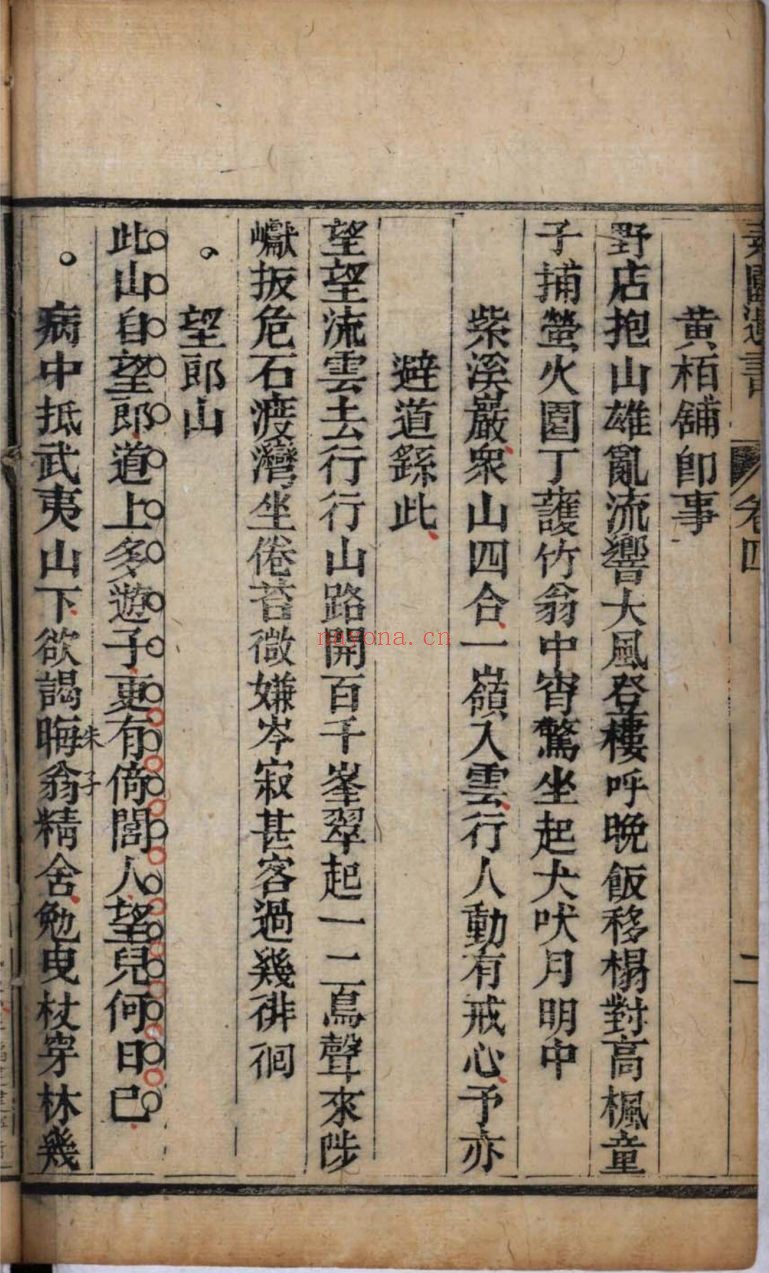 卷四
二
黄栢舖即事
野店抱山雄亂流響大風登樓呼晚飯移榻對高楓童
子捕螢火園丁護竹翁中宵驚坐起犬吠月明中
柴溪巖衆山四合一嶺入雲行人動有戒心予亦
避道繇此
望望流雲去行行山路開百千峯翠起一二鳥聲來陟
巘扳危石渡灣坐倦苔微嫌岑寂甚客過幾徘徊
望郎山
此山自望郎道上多遊子更有倚閭人望兒何日已
病中抵武夷山下欲謁晦翁精舍勉曳杖穿林幾
朱子
nayona.cn